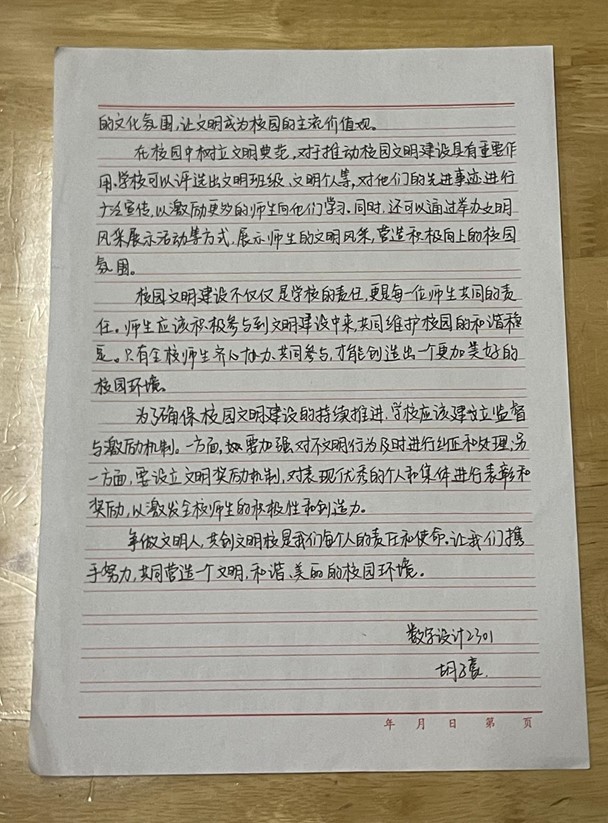 的文化氛围,让文明成为校园的主流价值观。
在校园中树立文明典范,对于推动校园文明建设具有重要作
用。学校可以评选出文明班级、文明个人等,对他们的先进事迹进行
广泛宣传,以激励更多的师生向他们学习。同时,还可以通过举办文明
风采展示活动等方式,展示师生的文明风采,营造积极向上的校园
氛围。
校园文明建设不仅仅是学校的责任,更是每一位师生共同的责
任。师生应该积极参与到文明建设中来,共同维护校园的和谐稳
定。只有全校师生齐心协力、共同参与,才能创造出一个更加美好的
校园环境。
为了确保校园文明建设的持续推进,学校应该建立监督
与激励机制。一方面,要加强对不文明行为及时进行纠正和处理;另
一方面,要设立文明奖励机制,对表现优秀的个人和集体进行表彰和
奖励,以激发全校师生的积极性和创造力。
争做文明人,共创文明校是我们每个人的责任和使命。让我们携
手努力,共同营造一个文明、和谐、美丽的校园环境。
数字设计2301
胡
年 月 日 第 页